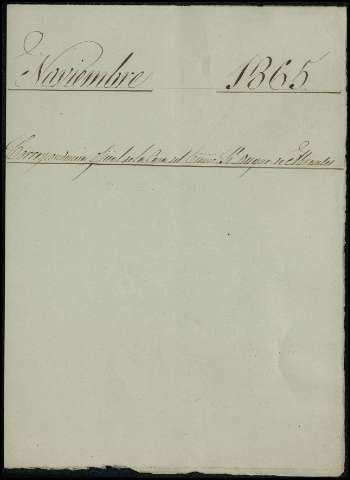 Noviembre 1865
Correspondencia oficial de la Casa del Excmo. Sr. Duque de Abrantes